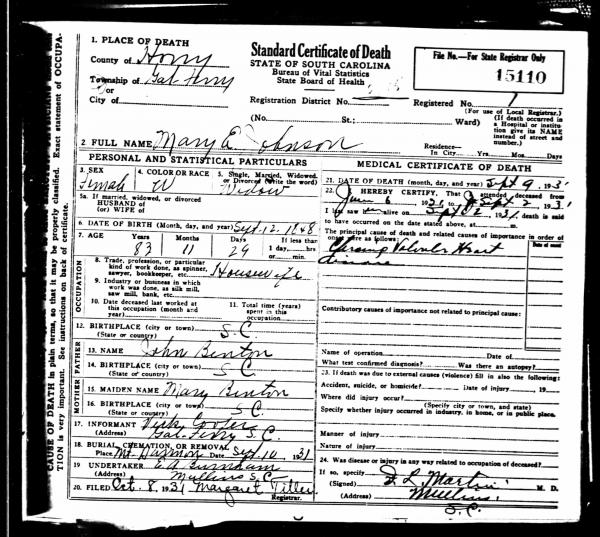 1. PLACE OF DEATH
County of Horry
Township of Gal. Ferry
or
City of
Standard Certificate of Death
STATE OF SOUTH CAROLINA
Bureau of Vital Statistics
State Board of Health
File No.—For State Registrar Only
15110
Registration District No.
Registered No. 1
(For use of Local Registrar.)
(No. St.; Ward)
(If death occurred in a Hospital or institution give its NAME instead of street and number.)
2. FULL NAME Mary E. Johnson
Residence— In City Yrs. Mos. Days
PERSONAL AND STATISTICAL PARTICULARS
3. SEX Female
4. COLOR OR RACE W
5. Single, Married, Widowed, or Divorced (write the word) Widow
5a. If married, widowed, or divorced
HUSBAND of
(or) WIFE of
6. DATE OF BIRTH (Month, day, and year) Sept. 12, 1848
7. AGE Years 83 Months 11 Days 29 If less than 1 day, hrs. or min.
OCCUPATION
8. Trade, profession, or particular kind of work done, as spinner, sawyer, bookkeeper, etc. Housewife
9. Industry or business in which work was done, as silk mill, saw mill, bank, etc.
10. Date deceased last worked at this occupation (month and year)
11. Total time (years) spent in this occupation
12. BIRTHPLACE (city or town) S.C.
(State or country)
FATHER
13. NAME John Benton
14. BIRTHPLACE (city or town) S.C.
(State or country)
MOTHER
15. MAIDEN NAME Mary Benton
16. BIRTHPLACE (city or town) S.C.
(State or country)
17. INFORMANT
(Address) Gal. Ferry S.C.
18. BURIAL, CREMATION, OR REMOVAL
Place Date Sept 10, 1931
19. UNDERTAKER
(Address) Mullins S.C.
20. FILED Oct. 8, 1931 Margaret
Registrar.
MEDICAL CERTIFICATE OF DEATH
21. DATE OF DEATH (month, day, and year) Sept 9, 193
22. I HEREBY CERTIFY, That I attended deceased from June 6 1931, to Sept 2, 1931
I last saw alive on Sept 2, 1931, death is said
to have occurred on the date stated above, at m.
The principal cause of death and related causes of importance in order of onset were as follows:
Date of onset
Chronic Valvular Heart
disease
Contributory causes of importance not related to principal cause:
Name of operation Date of
What test confirmed diagnosis? Was there an autopsy?
23. If death was due to external causes (violence) fill in also the following:
Accident, suicide, or homicide? Date of injury 19
Where did injury occur?
(Specify city or town, and state)
Specify whether injury occurred in industry, in home, or in public place.
Manner of injury
Nature of injury
24. Was disease or injury in any way related to occupation of deceased?
If so, specify
(Signed) L. Martin M. D.
(Address) Mullins
S.C.
CAUSE OF DEATH in plain terms, so that it may be properly classified. Exact statement of OCCUPA-
TION is very important. See instructions on back of certificate.